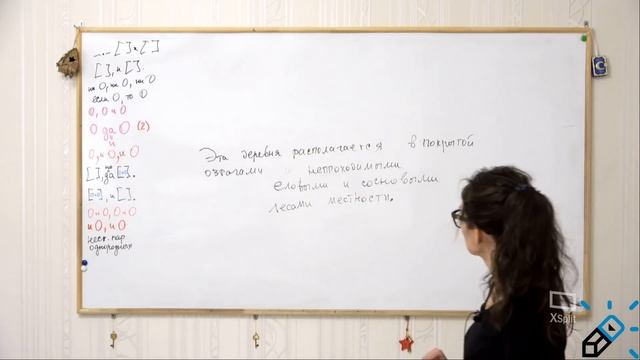 ... [ ] и [ ]
[ ], и [ ].
ни О, ни О, ни О
если О, то О
О, О и О
О да О (2)
и
О, и О, и О
[ ], но
да [ ].
[ ], и [ ].
О и О, О и О
и О, и О
неск. пар
однородных
Эта деревня располагается в покрытой
оврагами и непроходимыми
еловыми и сосновыми
лесами местности.
XSplit